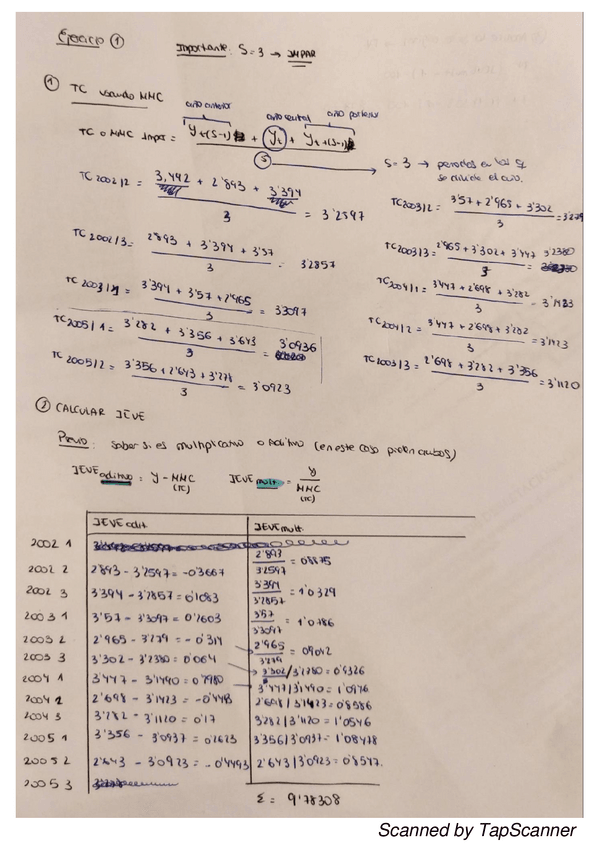 Ejercicio ①
Importante: S=3 → IMPAR
① TC usando MMC
año anterior año central año posterior
TC o MMC Impar = Yt-(S-1) + Yt + Yt+(S-1)
S → S=3 → periodos en los q se divide el año.
TC 2002/2 = 3,492 + 2'893 + 3'394 / 3 = 3'2597
TC 2002/3 = 2'893 + 3'394 + 3'57 / 3 = 3'2857
TC 2003/1 = 3'394 + 3'57 + 2'965 / 3 = 3'3097
TC 2005/1 = 3'282 + 3'356 + 3'643 / 3 = 3'0936
TC 2005/2 = 3'356 + 2'643 + 3'278 / 3 = 3'0923
TC 2003/2 = 3'57 + 2'965 + 3'302 / 3 = 3'279
TC 2003/3 = 2'965 + 3'302 + 3'447 / 3 = 3'2380
TC 2004/1 = 3'447 + 2'698 + 3'282 / 3 = 3'1423
TC 2004/2 = 3'447 + 2'698 + 3'282 / 3 = 3'1423
TC 2003/3 = 2'698 + 3'282 + 3'356 / 3 = 3'1120
② CALCULAR IEVE
Previo: saber si es multiplicativo o Aditivo (en este caso piden ambos)
IEVE aditivo = Y - MMC (TC) IEVE mult = Y / MMC (TC)
IEVE adit. IEVE mult.
2002 1
2002 2 2'893 - 3'2597 = -0'3667 2'893 / 3'2597 = 0'8875
2002 3 3'394 - 3'2857 = 0'1083 3'394 / 3'2857 = 1'0329
2003 1 3'57 - 3'3097 = 0'2603 3'57 / 3'3097 = 1'0786
2003 2 2'965 - 3'279 = -0'314 2'965 / 3'279 = 0'9042
2003 3 3'302 - 3'2380 = 0'064 3'302/3'2380 = 0'9326
2004 1 3'447 - 3'1490 = 0'2980 3'447/3'1490 = 1'0976
2004 2 2'698 - 3'1423 = -0'4443 2'698/3'1423 = 0'8586
2004 3 3'282 - 3'1120 = 0'17 3'282/3'1120 = 1'0546
2005 1 3'356 - 3'0937 = 0'2623 3'356/3'0937 = 1'08478
2005 2 2'643 - 3'0923 = -0'4493 2'643/3'0923 = 0'8547.
2005 3
Σ = 9'78308
Scanned by TapScanner